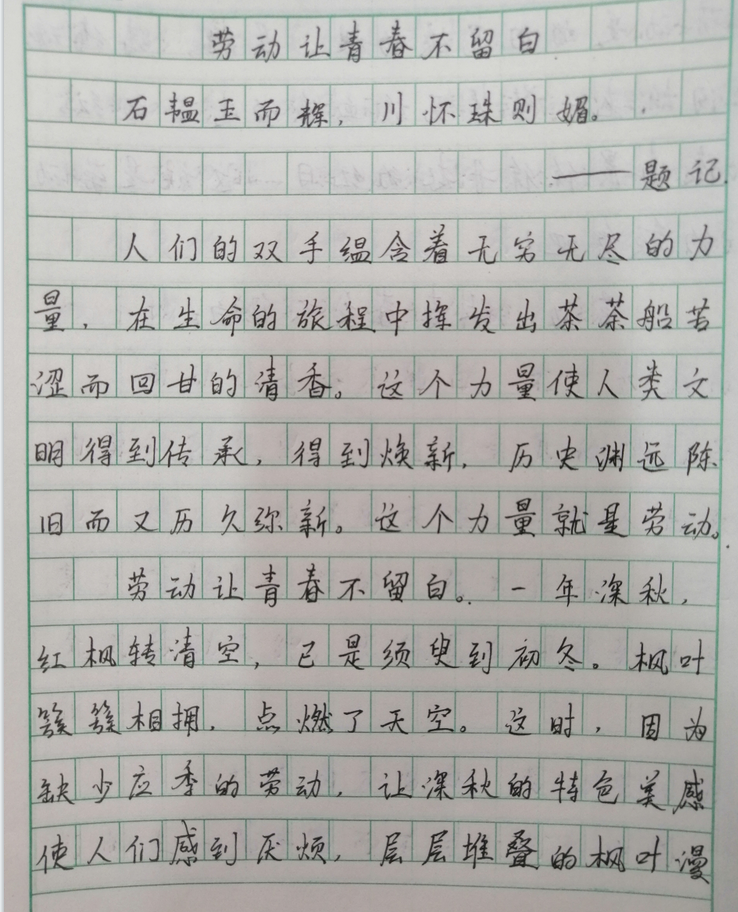 劳动让青春不留白
石韫玉而辉，川怀珠则媚。
——题记.
人们的双手缊含着无穷无尽的力
量，在生命的旅程中挥发出茶茶般苦
涩而回甘的清香。这个力量使人类文
明得到传承，得到焕新，历史渊远陈
旧而又历久弥新。这个力量就是劳动。
劳动让青春不留白。一年深秋，
红枫转清空，已是须臾到初冬。枫叶
簇簇相拥，点燃了天空。这时，因为
缺少应季的劳动，让深秋的特色美感
使人们感到厌烦，层层堆叠的枫叶漫